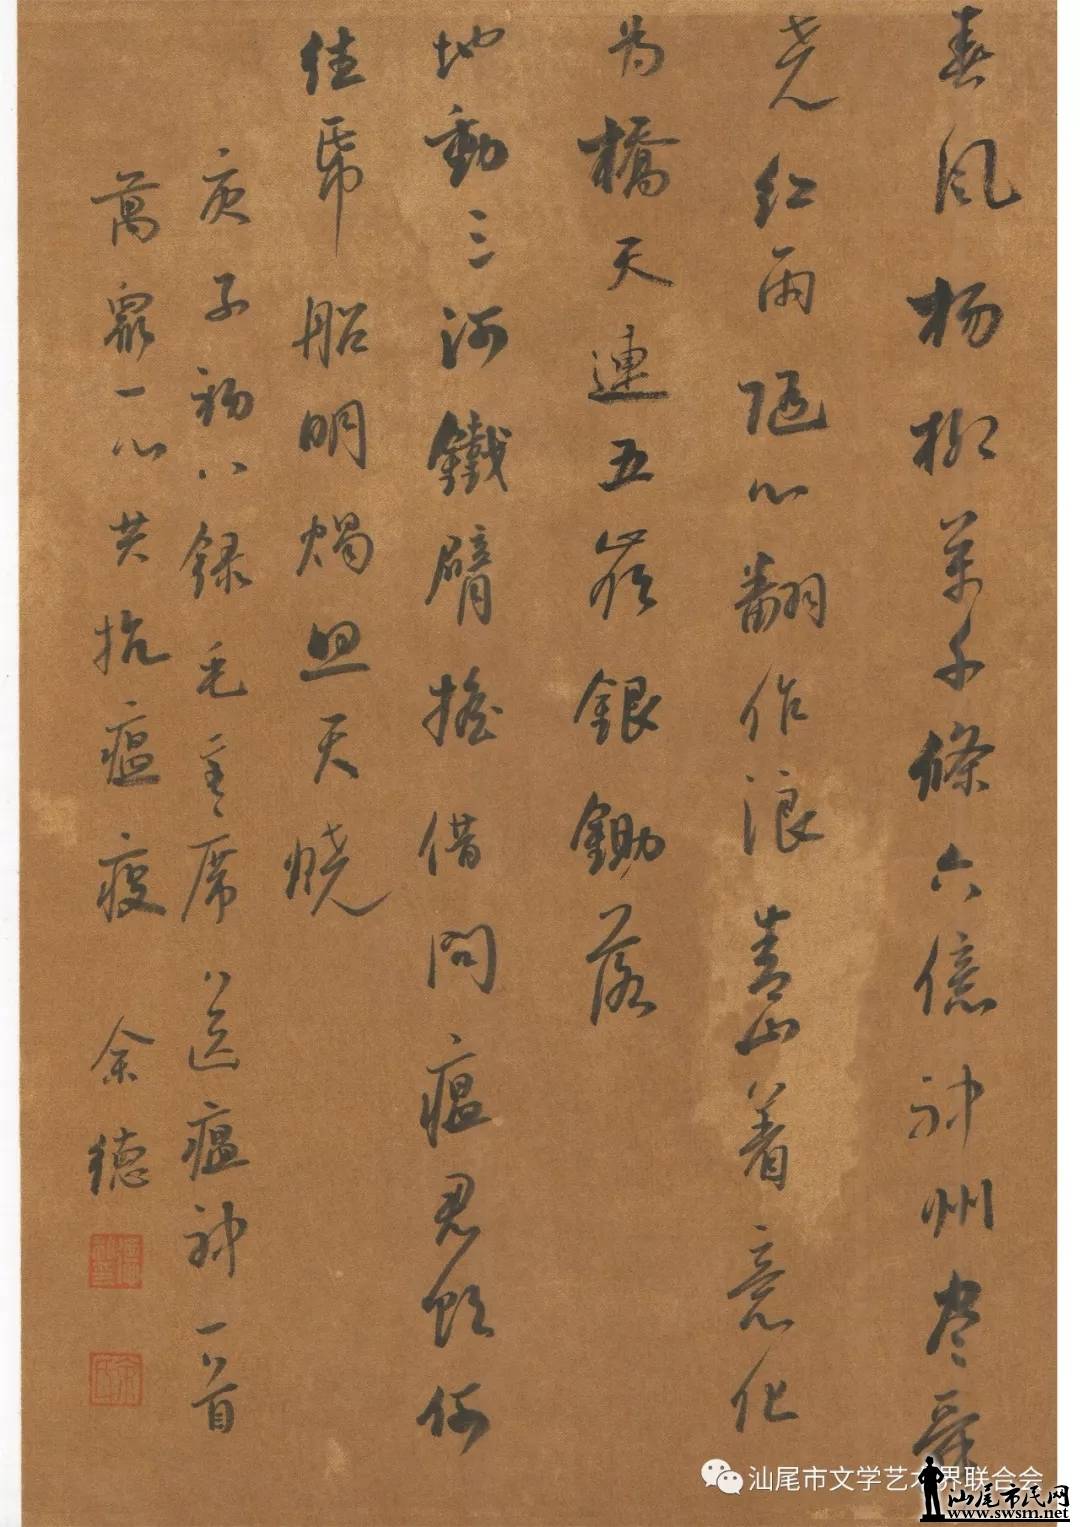 春風楊柳萬千條六億神州尽舜
尧红雨随心翻作浪青山着意化
为橋天連五嶺銀鋤落
地動三河鐵臂摇借問瘟君欲何
往帋船明燭照天烧
庚子初八録毛主席送瘟神一首
萬衆一心共抗瘟疫 余德
汕尾市文学艺术界联合会
汕尾市民网
www.swsm.net